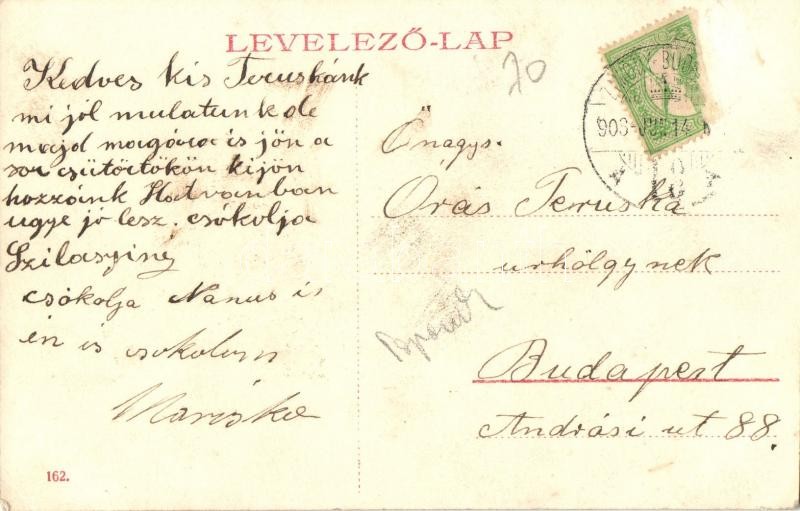 LEVELEZŐ-LAP
Kedves kis Teruskánk
mi jól mulatunk de
majd magára is jön a
sor csütörtökön kijön
hozzánk Hatvanban
ugye jó lesz. csókolja
Szilasziné
csókolja Nanus is
én is csokolom
Mariska
162.
70
908 JUN 14
Önagys.
Orás Teruska
urhölgynek
Budapest
Andrási ut 88.